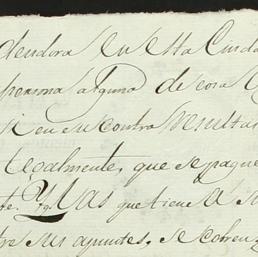 deudora en esta Ciuda
persona alguna de cosa
si en su contra resultas
legalmente, que se pague
te. Y las que tiene a s
tre sus apuntes, se cobren